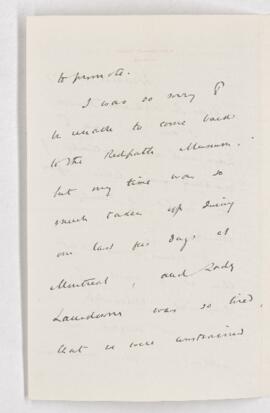 to promote.
I was so sorry to
be unable to come back
to the Redpath Museum.
but my time was so
much taken up during
our last few days at
Montreal, and Lady
Lansdowne was so tired
that we were constrained